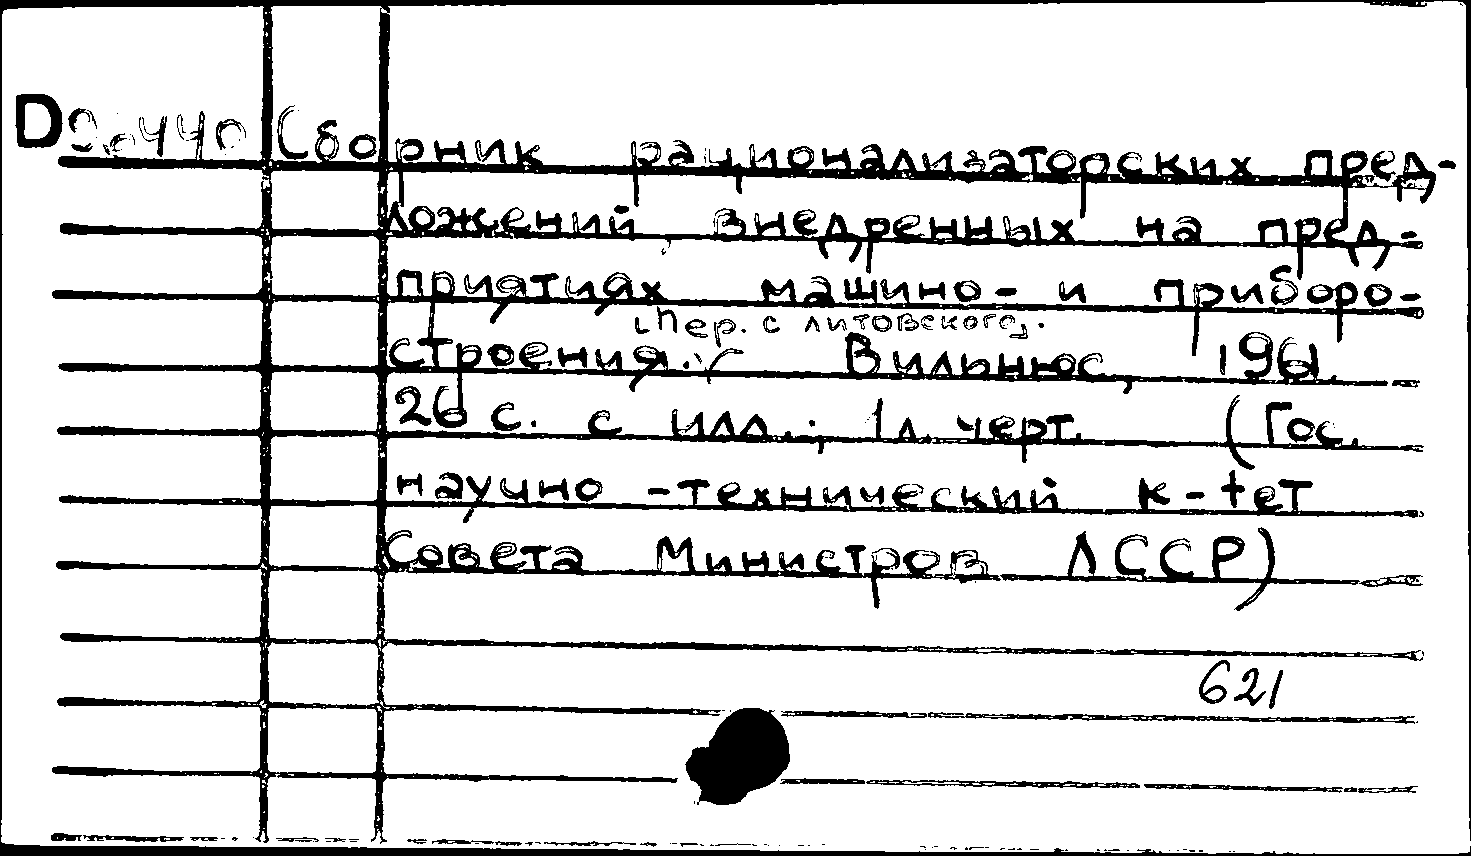 D Сборник рационализаторских пред-
ложений, внедренных на пред-
приятиях машино- и приборо-
[Пер. с литовского].
строения. Вильнюс, 1961.
26 с. с илл.; 1 л. черт. (Гос.
научно-технический к-тет
Совета Министров ЛССР)
621